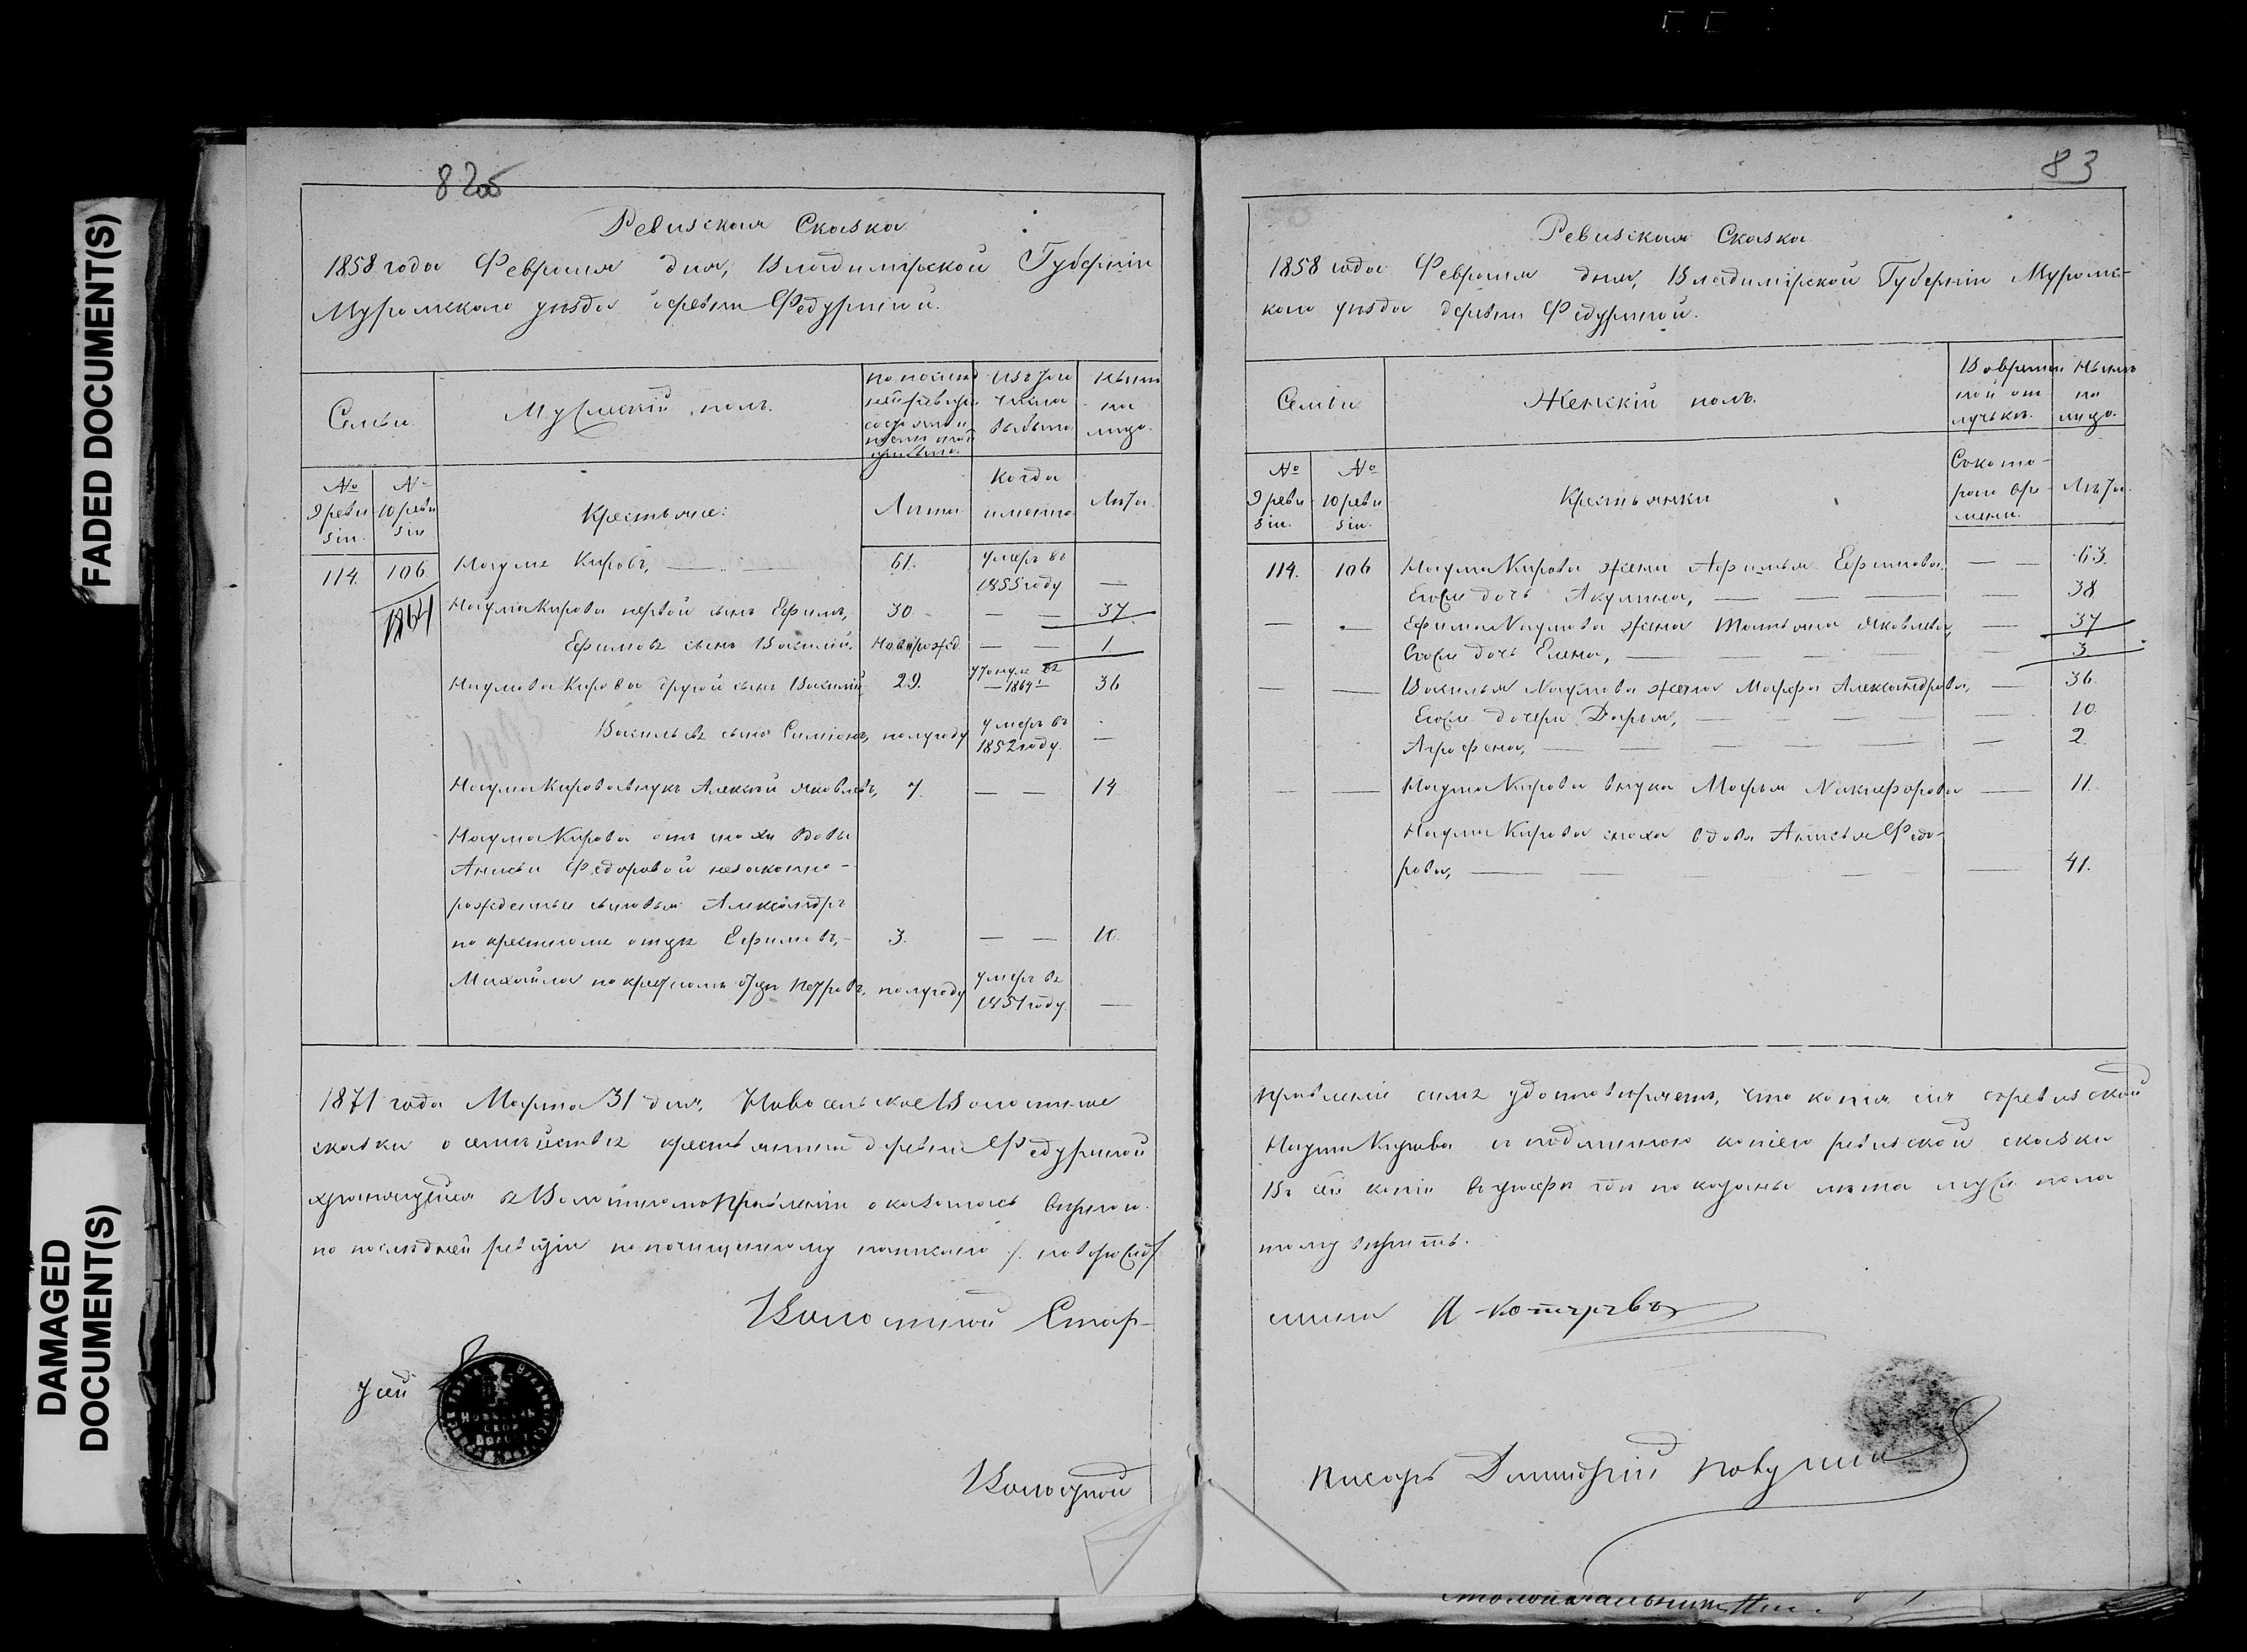 FADED DOCUMENT(S)
DAMAGED
DOCUMENT(S)
82об
Ревизская Сказка
1858 года Февраля дня, Владимірской Губерніи
Муромскаго уѣзда деревни Федуриной.
Семьи
Мужескій полъ.
по послед
ней ревизіи
состояло и
после того
прибыло.
Изъ того
числа
выбыло
Нынѣ
на
лицо.
№ 9 реви зіи.
№ 10 реви зіи
Крестьяне:
Лѣта.
Когда
именно
Лѣта.
114. 106. Наумъ Кировъ, 61. умеръ въ
1855 году
1864
Наума Кирова первой сынъ Ефимъ, 30 37.
Ефимовъ сынъ Василій. Новорожд. 1.
Наумова Кирова другой сынъ Василій 29. утонулъ въ 1864 36
Васильевъ сынъ Симіонъ, полугоду умеръ въ
1852 году.
Наума Кирова внукъ Алексѣй Яковлевъ, 7. 14
Наума Кирова отъ снохи вдовы
Анисьи Федоровой незаконно-
рожденные сыновья Александръ
по крестному отцу Ефимовъ, 3. 10.
Михайла по крестному отцу Петровъ, полугоду умеръ въ
1851 году.
1871 года Марта 31 дня, Новосельское Волостное
сказки о семействѣ крестьянина деревни Федуриной
хранящейся въ Волостномъ Правленіи оказалась вѣрною.
по последней ревизіи по почищенному написано /. новорожд /.
Волостной Стар-
У сей
Волостной
83
Ревизская Сказка
1858 года Февраля дня, Владимірской Губерніи Муромс-
каго уѣзда деревни Федуриной.
Семьи
Женскій полъ.
Во времен
ной от
лучькѣ.
Нынѣ
на
лицо.
№ 9 реви зіи.
№ 10 реви зіи.
Крестьянки
Съ кото-
раго вре-
мени.
Лѣта.
114. 106 Наума Кирова жена Афимья Ефимова. 63.
Егоже дочь Акулина, 38
Ефима Наумова жена Татьяна Яковлева, 37
Егоже дочь Елена, 3.
Василья Наумова жена Марфа Александрова, 36.
Егоже дочери Дарья, 10.
Аграфена, 2.
Наума Кирова внука Марья Никифорова 11.
Наума Кирова сноха вдова Анисья Федо-
рова, 41.
Правленіе симъ удостовѣряетъ, что копія сія съ ревизской
Наума Кирова съ подлинною копіею ревизской сказки
Въ сей копіи въ графѣ гдѣ показаны лѣта муж. пола
тому вѣрить.
шина
Писарь Димитрій